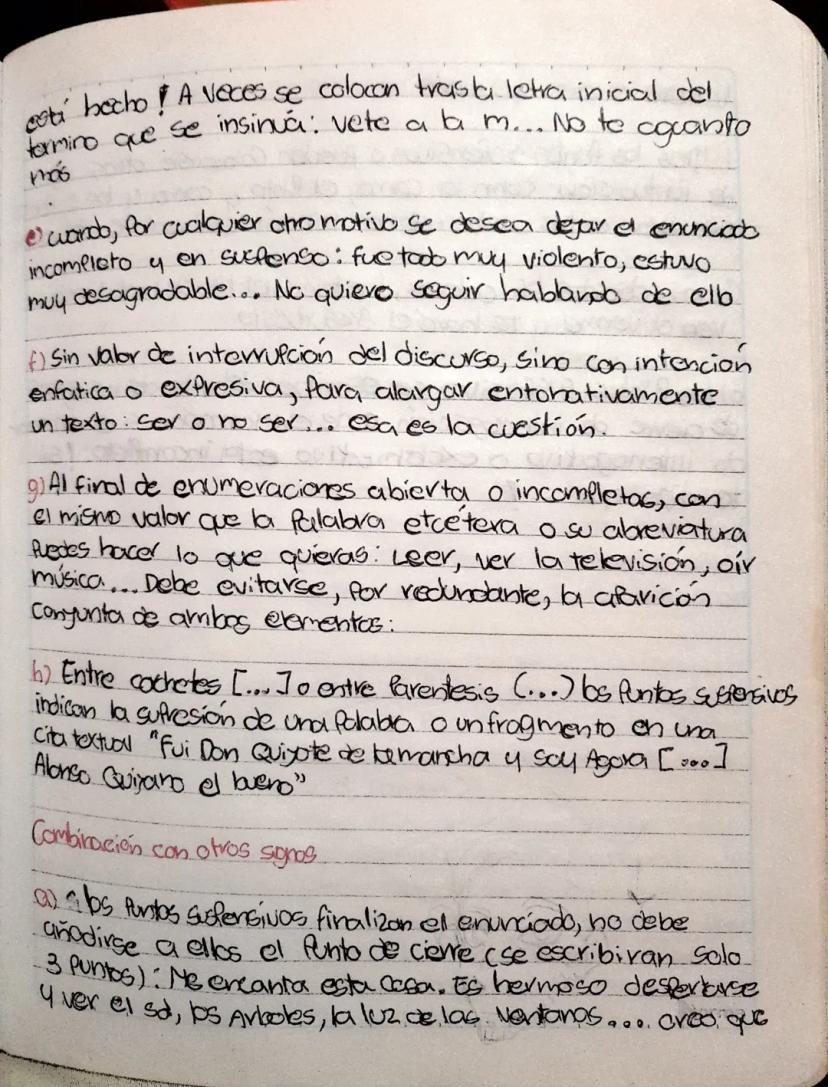 está hecho! A veces se colocan tras la letra inicial del
termino que se insinúa: vete a la m... No te aguanto
más
.
e) cuando, por cualquier otro motivo se desea dejar el enunciado
incompleto y en suspenso: fue todo muy violento, estuvo
muy desagradable... No quiero seguir hablando de ello
f) Sin valor de interrupción del discurso, sino con intención
enfatica o expresiva, para alargar entonativamente
un texto: ser o no ser... esa es la cuestión.
g) Al final de enumeraciones abierta o incompletas, con
el mismo valor que la palabra etcétera o su abreviatura
Puedes hacer lo que quieras: Leer, ver la televisión, oír
música... Debe evitarse, por redundante, la aparición
conjunta de ambos elementos:
h) Entre cochetes [...] o entre Parentesis (...) los Puntos suspensivos
indican la supresión de una palabra o un fragmento en una
cita textual "Fui Don Quijote de la mancha y soy Agora [...]
Alonso Quijano el bueno"
Combinación con otros signos
a) los Puntos suspensivos finalizan el enunciado, no debe
añadirse a ellos el Punto de cierre (se escribiran solo
3 Puntos): Me encanta esta casa. Es hermoso despertarse
y ver el sol, los Arboles, la luz de las ventanas.... creo que